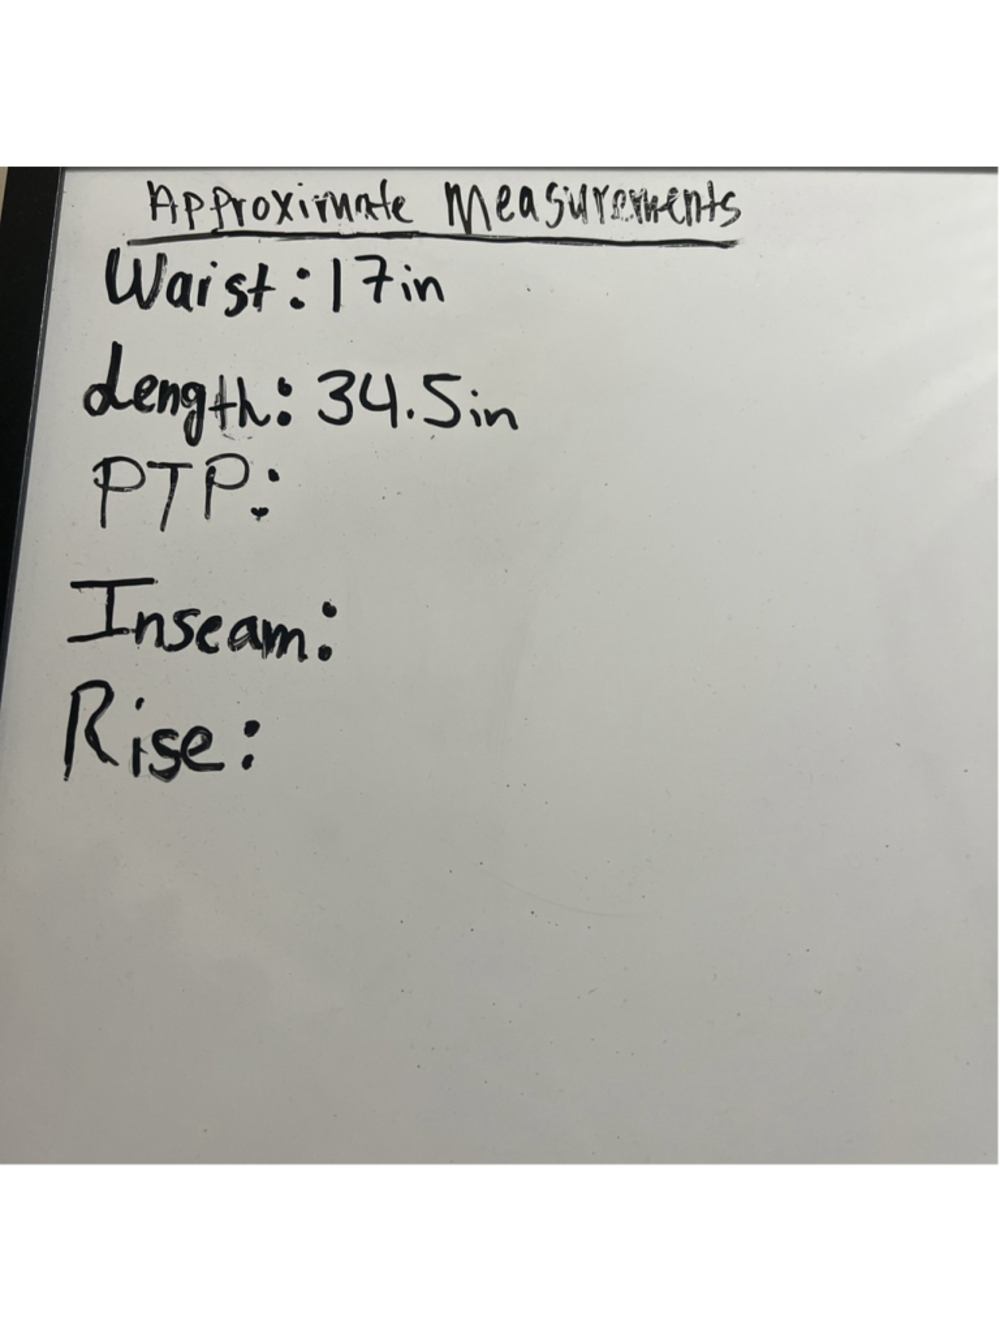 Approximate Measurements
Waist: 17in
Length: 34.5in
PTP:
Inseam:
Rise: